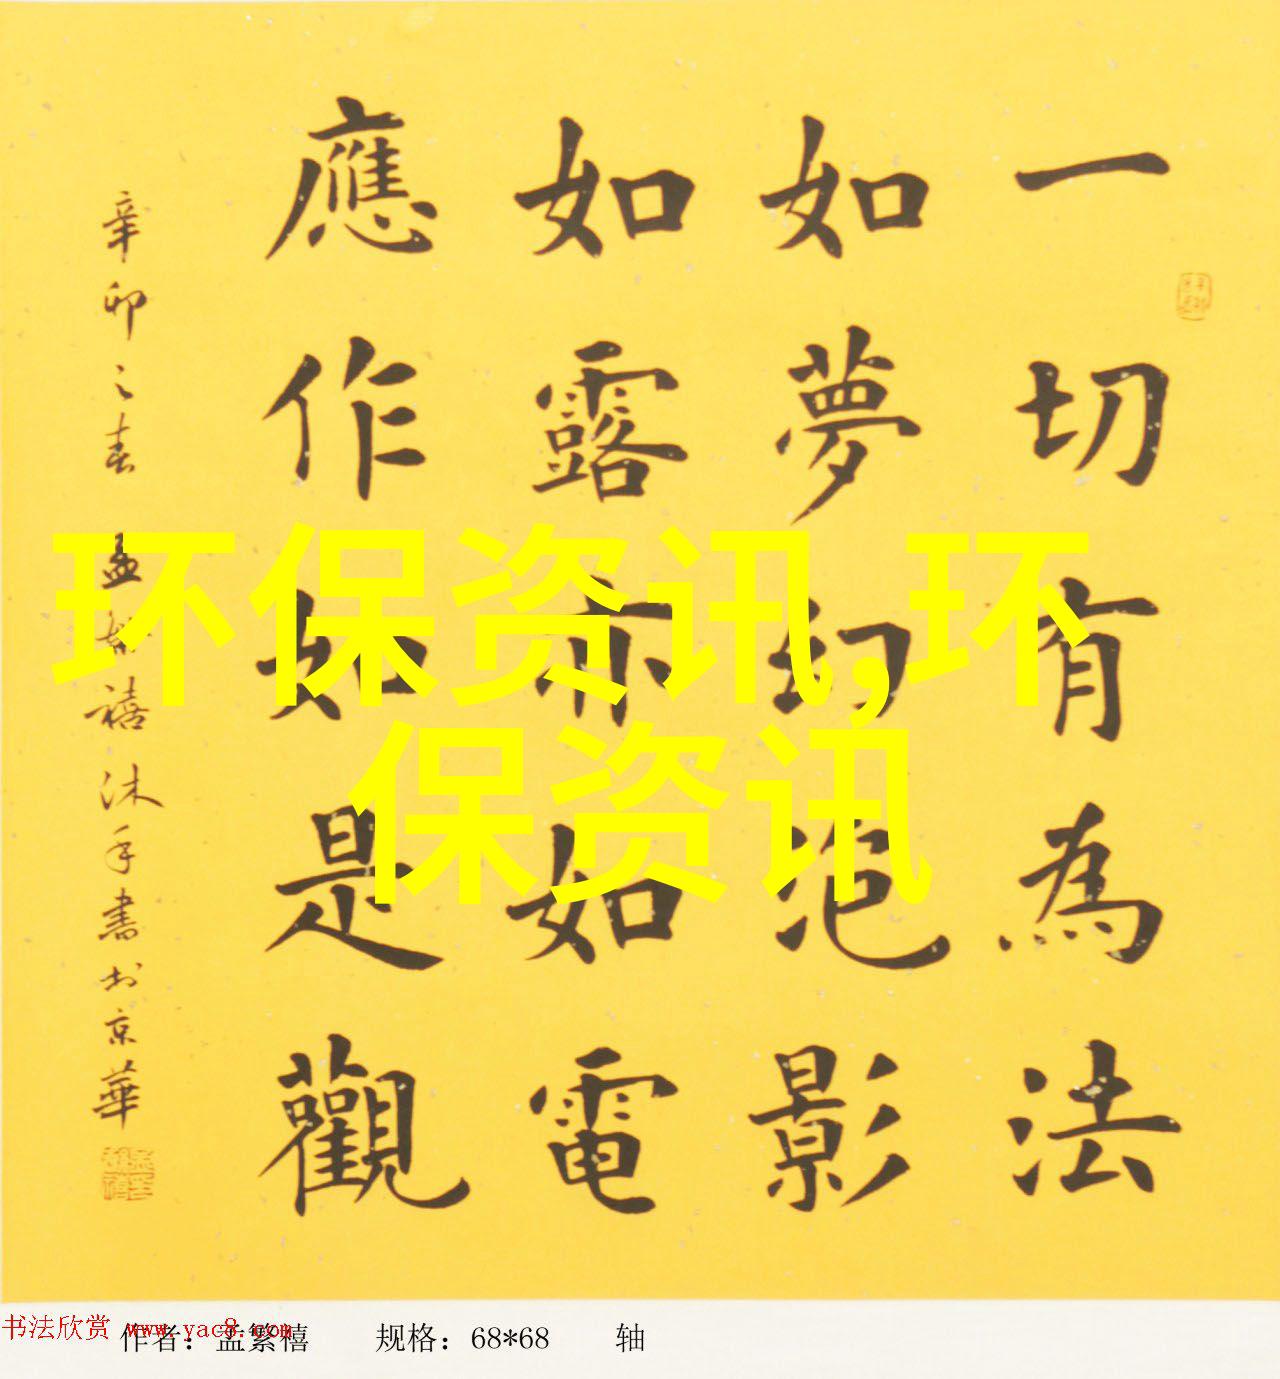 一切有為法
如夢幻泡影
如露亦如電
應作如是觀
辛卯之春 孟繁禧沐手書於京華
环保资讯,环
保资讯
书法欣赏 www.yac8.com
作者：孟繁禧 规格：68*68 轴